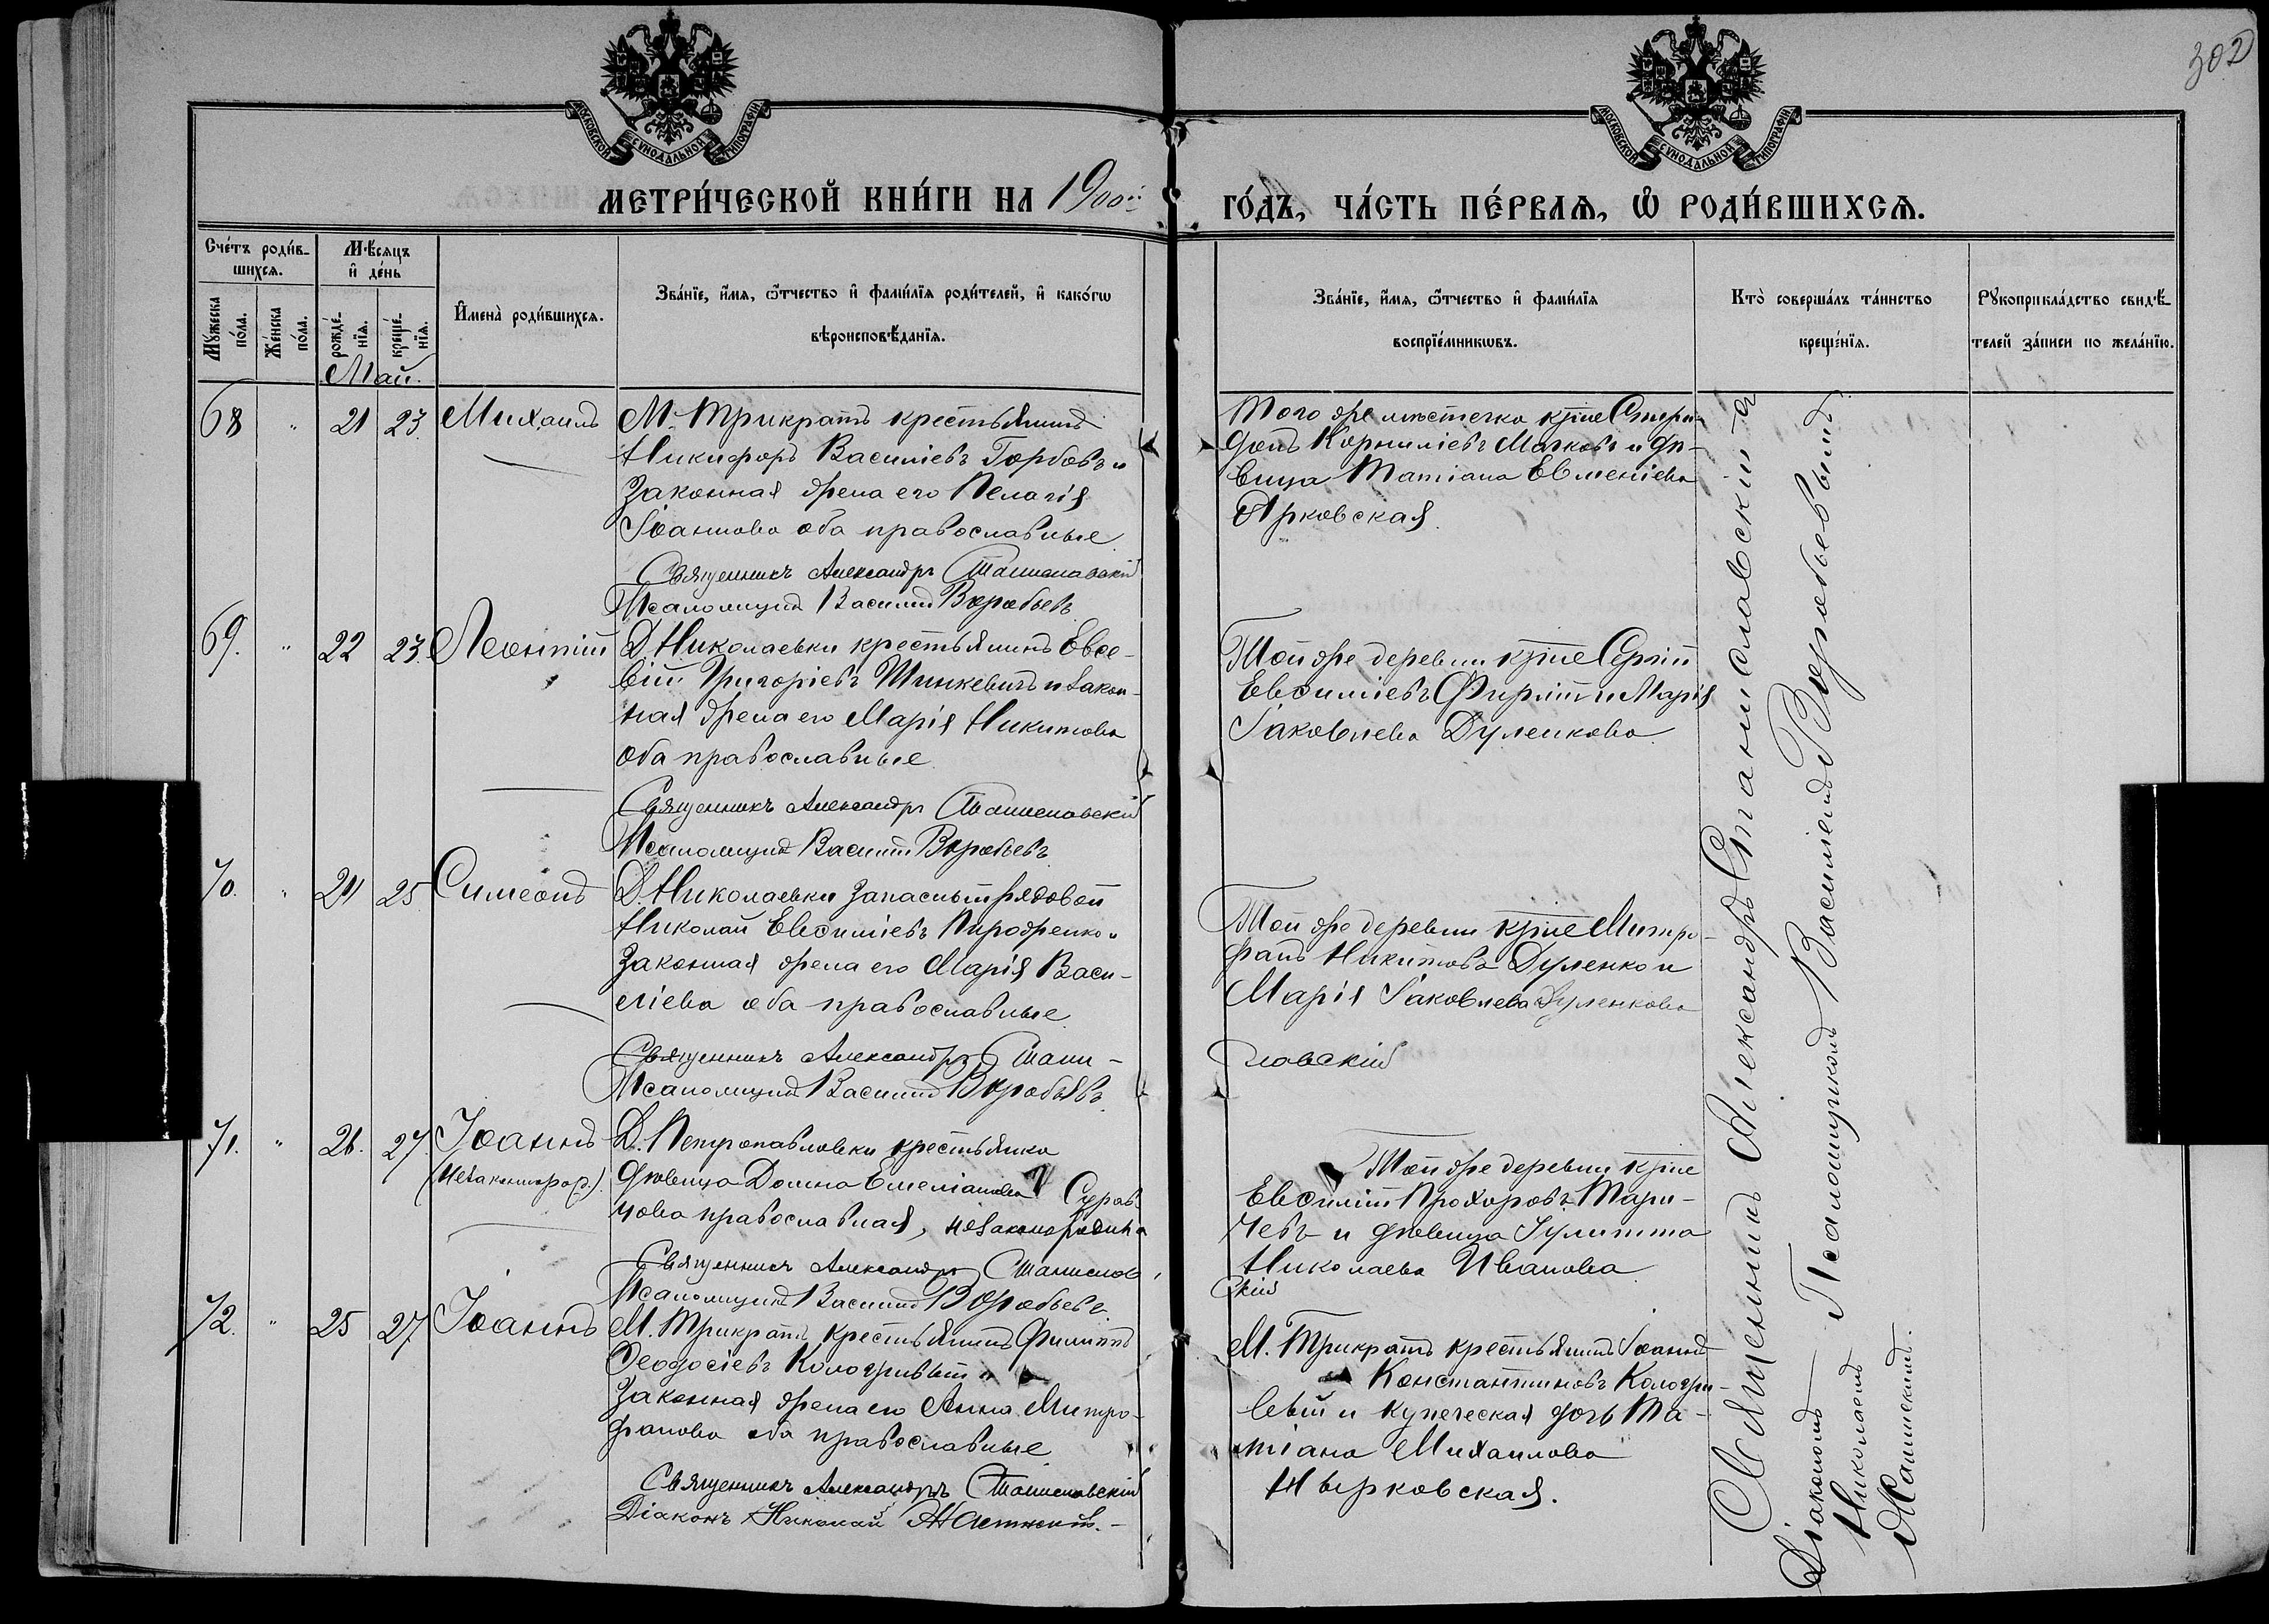 302
МОСКОВСКОЙ СѴНОДАЛЬНОЙ ТИПОГРАФІИ
МОСКОВСКОЙ СѴНОДАЛЬНОЙ ТИПОГРАФІИ
МЕТРИ́ЧЕСКОЙ КНИ́ГИ НА 1900й
ГО́ДЪ, ЧА́СТЬ ПЕ́РВАѦ, Ѡ РОДИ́ВШИХСѦ.
Сче́тъ роди́в-
шихсѧ.
Мꙋ́жеска по́ла.
Же́нска по́ла.
Мѣ́сѧцъ
и҆ де́нь
рожде́-
нїѧ.
креще́-
нїѧ.
Май.
И҆мена̀ роди́вшихсѧ.
Зва́нїе, и҆́мѧ, ѻ҆́тчество и҆ фами́лїѧ роди́телей, и҆ како́гѡ
вѣроисповѣ́данїѧ.
Зва́нїе, и҆́мѧ, ѻ҆́тчество и҆ фами́лїѧ
воспрїе́мникѡвъ.
Кто̀ соверша́лъ та́инство
креще́нїѧ.
Рꙋкоприкла́дство свидѣ́-
телей за́писи по жела́нїю.
68 " 21 23. Михаилъ
М. Трикратъ крестьянинъ
Никифоръ Василіевъ Горбовъ и
законная жена его Пелагія
Іоаннова оба православные
Священникъ Александръ Станиславскій
Псаломщикъ Василій Воробьевъ
Того же мѣстечка крне Спири-
донъ Корниліевъ Марковъ и дѣ-
вица Татіана Евменіева
Ярковская.
69. " 22 23. Леонтій
Д. Николаевки крестьянинъ Евсе-
вій Григоріевъ Шинкевичъ и закон-
ная жена его Марія Никитова
оба православные
Священникъ Александръ Станиславскій
Псаломщикъ Василій Воробьевъ
Той же деревни крне Сергій
Евсиміевъ и Марія
Іаковлева Дуленкова
70. " 24 25 Симеонъ
Д. Николаевки запасный рядовой
Николай Евсиміевъ Пироженко и
законная жена его Марія Васи-
лієва оба православные
Священникъ Александръ Стани-
славскій
Псаломщикъ Василій Воробьевъ
Той же деревни крне Митро-
фанъ Никитовъ Дуленко и
Марія Іаковлева Дуленкова
71. " 26. 27. Іоаннъ
(Незаконнорож.)
Д. Петропавловки крестьянка
дѣвица Домна Емеліанова
православная, незаконнорожд
Священникъ Александръ Станислав
скій
Псаломщикъ Василій Воробьевъ
Той же деревни крне
Евсимій Прохоровъ Тари-
чевъ и дѣвица Іулитта
Николаева Иванова
72. " 25 27. Іоаннъ
М. Трикратъ крестьянинъ Филиппъ
Ѳеодосіевъ Кологривый и
законная жена его Анна Митро-
фанова оба православные
Священникъ Александръ Станиславскій
Діаконъ Николай
М. Трикратъ крестьянинъ Іоаннъ
Константиновъ Кологри-
вый и купеческая дочь Та-
тіана Михаилова
Нырковская.
Священникъ Александръ Станиславскій съ
Діакономъ Псаломщикомъ Василіемъ Воробьевымъ
Николаемъ